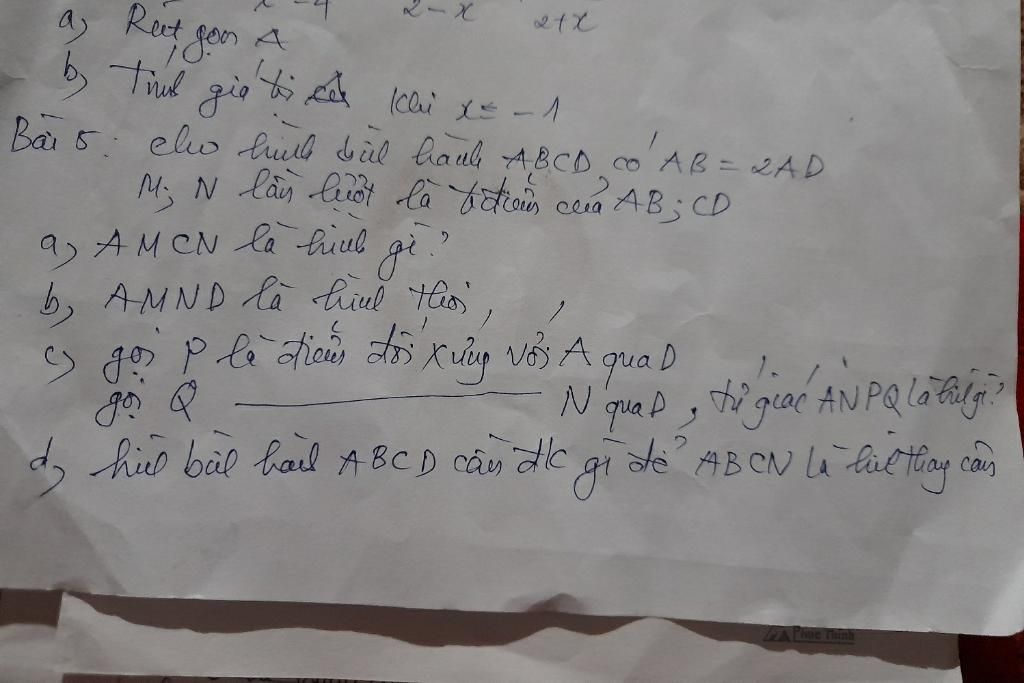 x - 4 2 - x 2 + x
a, Rút gọn A
b, Tính giá trị khi x = - 1
Bài 5: cho hình bình hành ABCD, có AB = 2AD
M; N lần lượt là tđiểm của AB; CD
a, AMCN là hình gì?
b, AMND là hình thoi,
c, gọi P là điểm đối xứng với A qua D
gọi Q ——— N qua D, tứ giác ANPQ là hình gì?
d, hình bình hành ABCD cần đk gì để ABCN là hình thang cân
Phuc Thinh